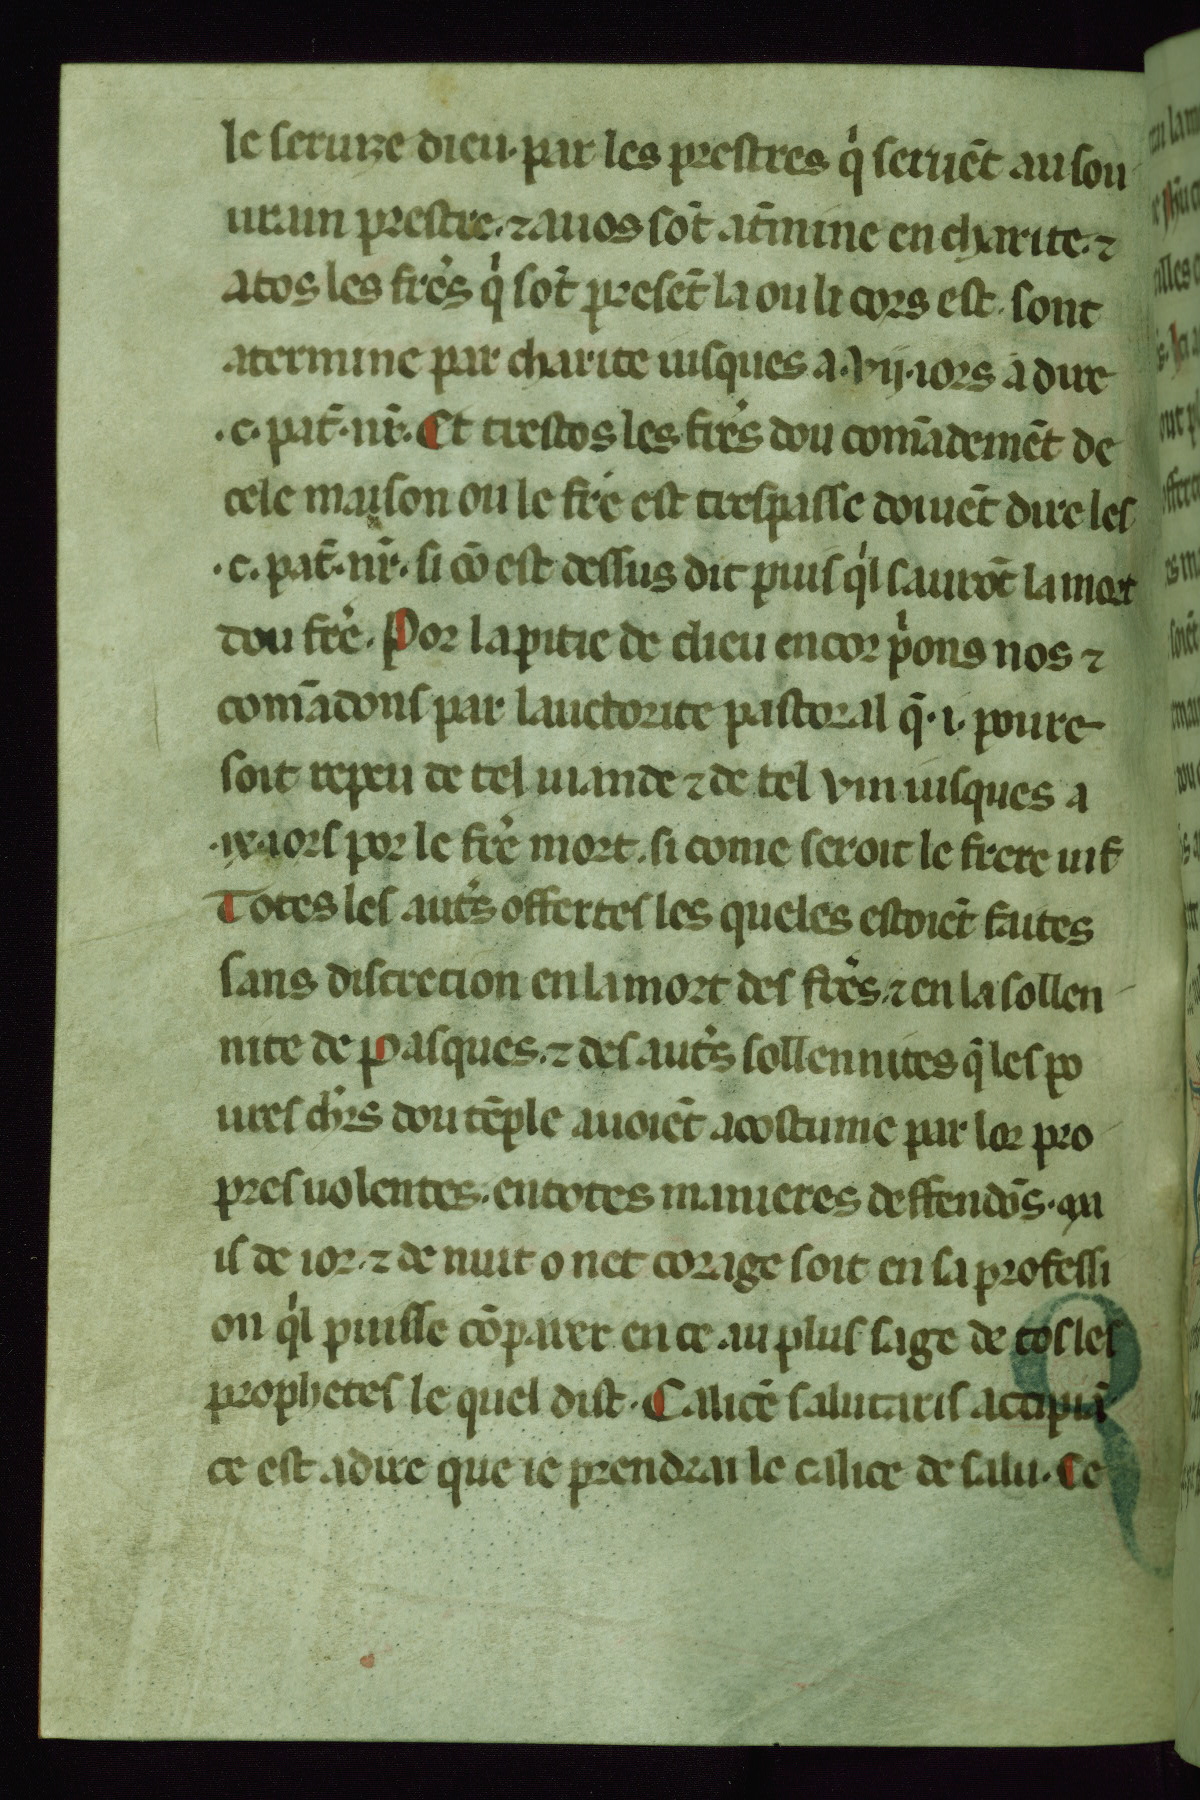 le seruize dieu. par les prestres q̍ seruēt au sou
urain prestre. ⁊ auos sōt at̄mine en charite. ⁊
atos les fre̍s q̍ sōt presēt la ou li cors est. sont
atermine par charite iusques a .vij. iors a dire
.c. pat̄. nr̄. Et trestos les fre̍s dou comādemēt de
cele maison ou le fre̍ est trespasse doiuēt dire les
.c. pat̄. nr̄. si cō est dessus dit puis q̍l saurōt la mort
dou fre̍. Por la pitie de dieu encor p̍ons nos ⁊
comādons par lauctorite pastoral q̄ .i. poure
soit repeu de tel uiande ⁊ de tel vin iusques a
.xl. iors por le fre̍ mort. si come seroit le frere uif
Totes les aut̍s offertes les queles estoiēt faites
sans discretion en la mort des fre̍s. ⁊ en la sollen
nite de pasques. ⁊ des aut̍s sollennites q̄ les po
ures ch̍rs dou tēple auoiēt acostume par lor pro
pres uolentes. en totes manieres deffendōs. qu
il de ior. ⁊ de nuit o net corage soit en sa professi
on q̍l puisse cōparer en ce au plus sage de tos les
prophetes le quel dist. Calicē salutaris accipiā
ce est a dire que ie prendrai le calice de salu. Ce